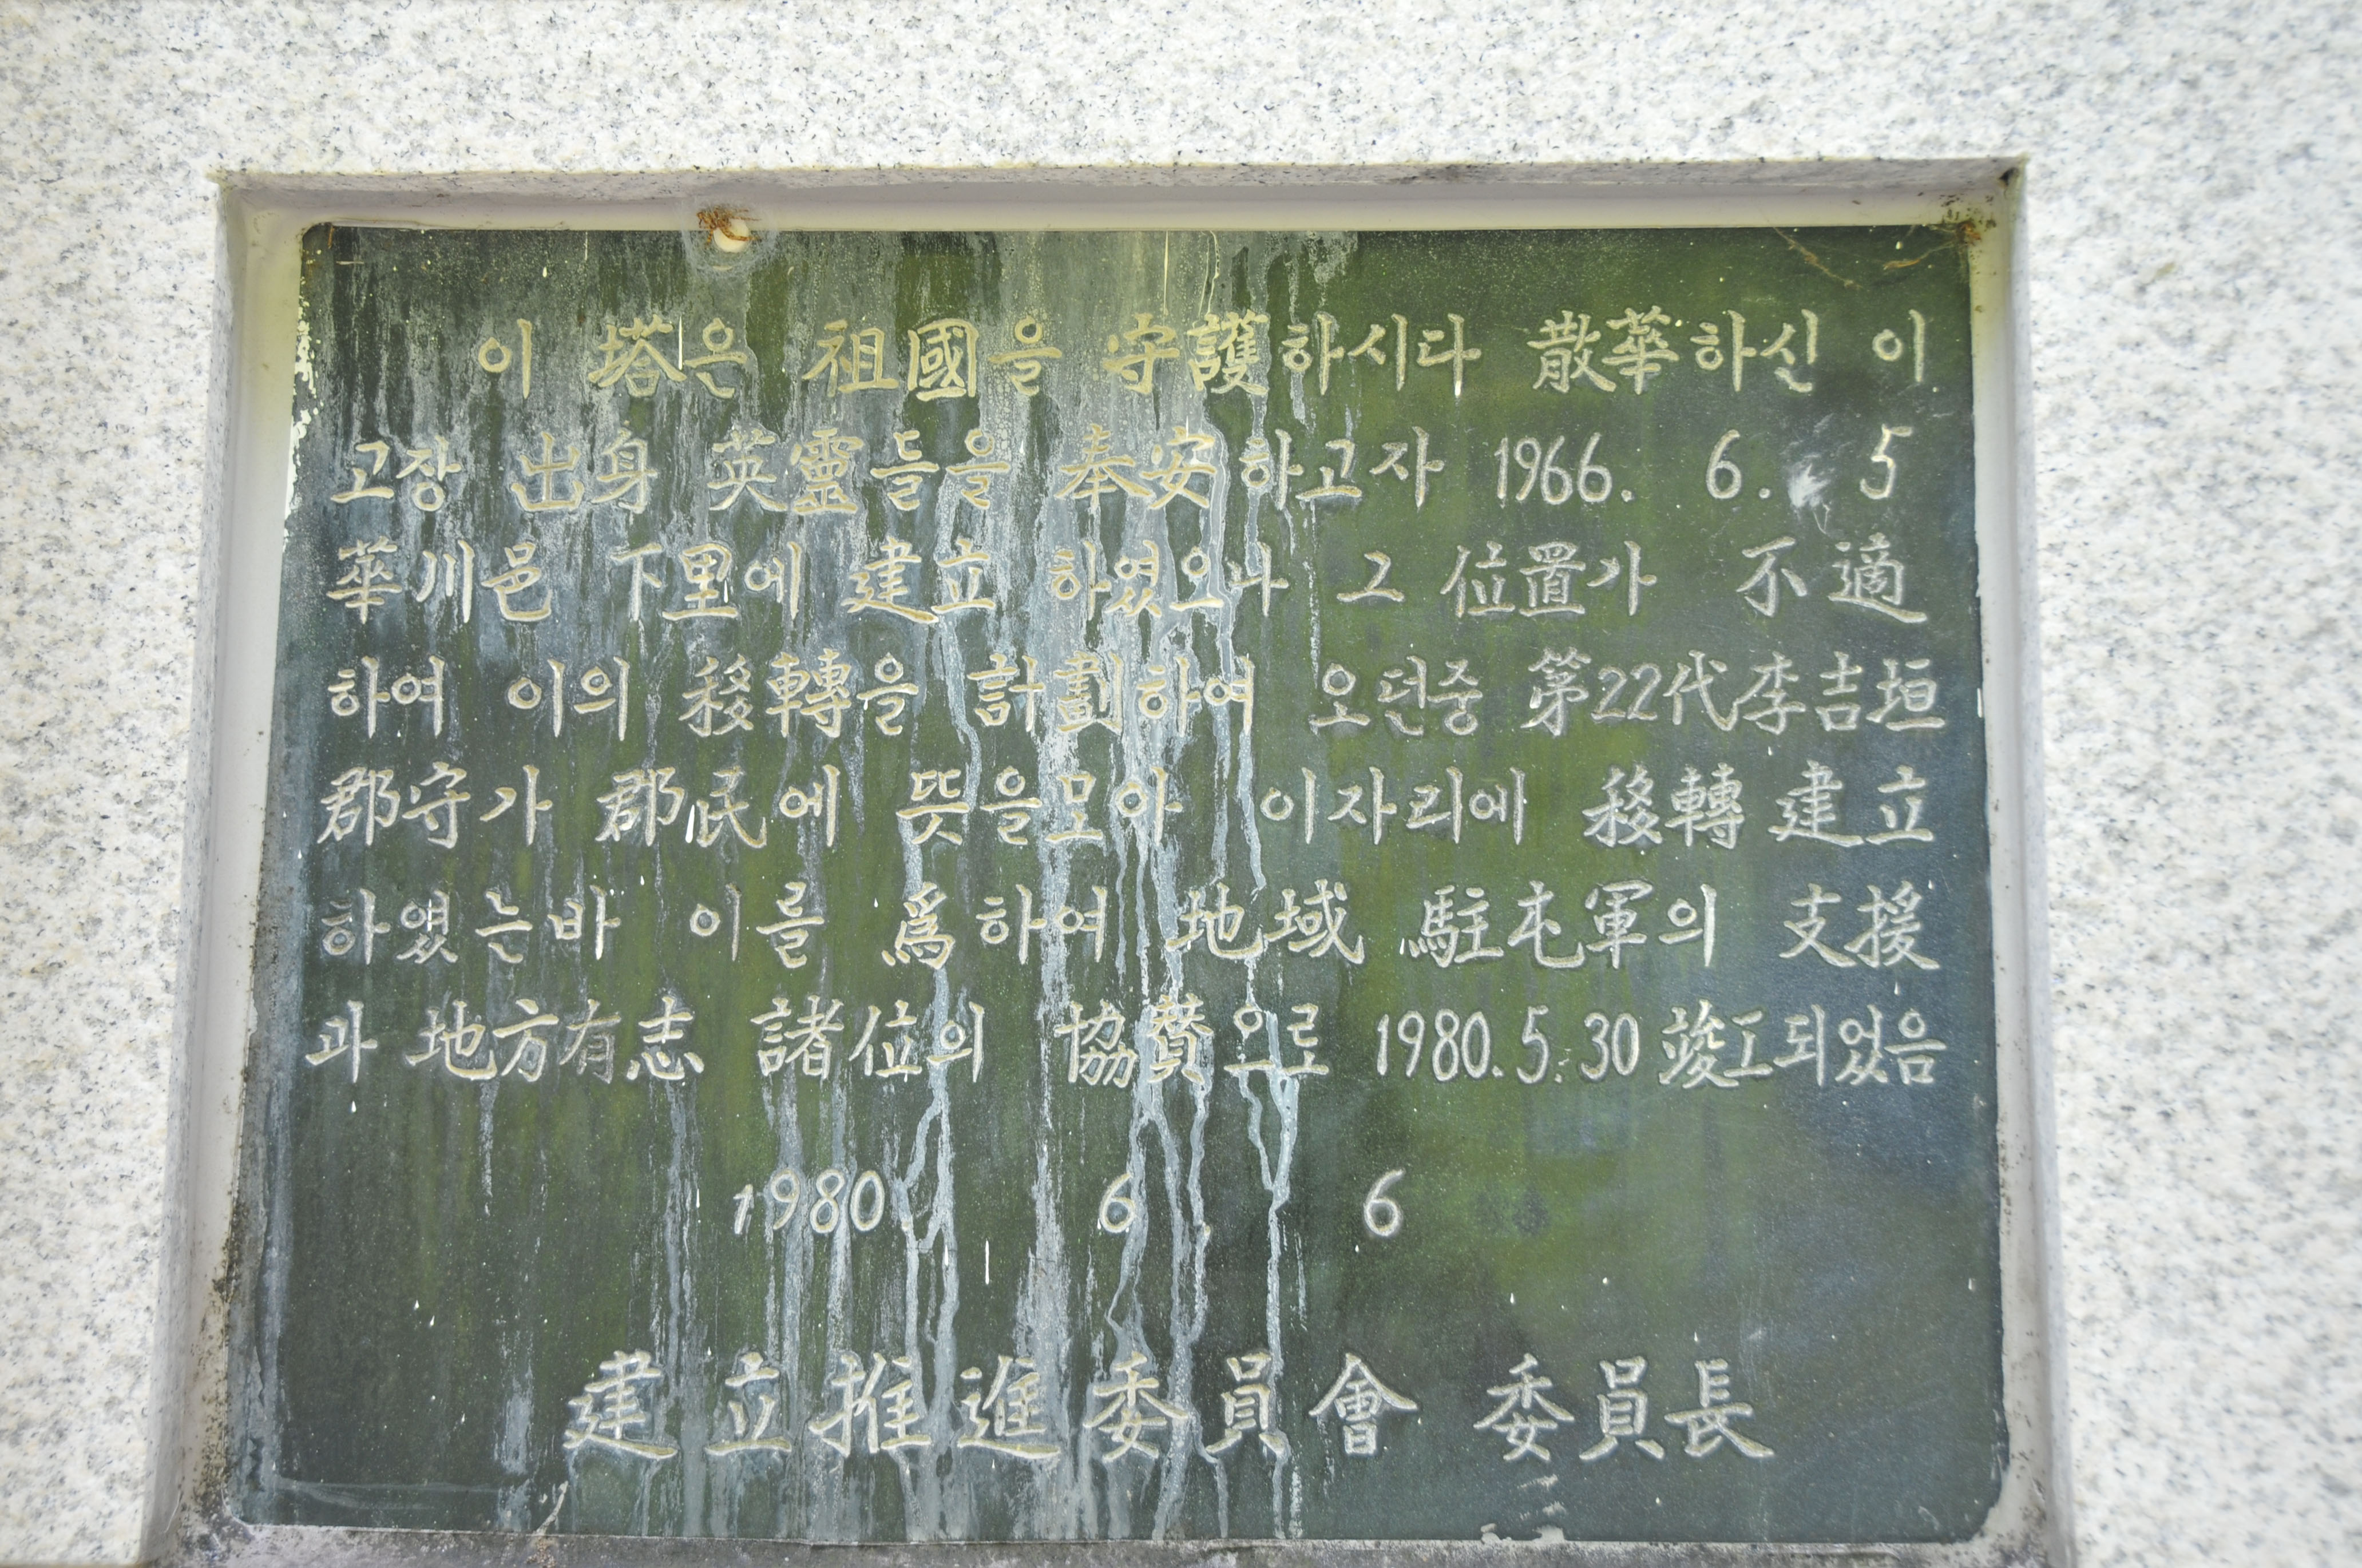 이 塔은 祖國을 守護하시다 散華하신 이
고장 出身 英靈들을 奉安하고자 1966. 6. 5
華川邑 下里에 建立 하였으나 그 位置가 不適
하여 이의 移轉을 計劃하여 오던중 第22代李吉垣
郡守가 郡民에 뜻을모아 이자리에 移轉 建立
하였는바 이를 爲하여 地域 駐屯軍의 支援
과 地方有志 諸位의 協賛으로 1980.5.30 竣工되었음
1980. 6. 6
建立推進委員會 委員長